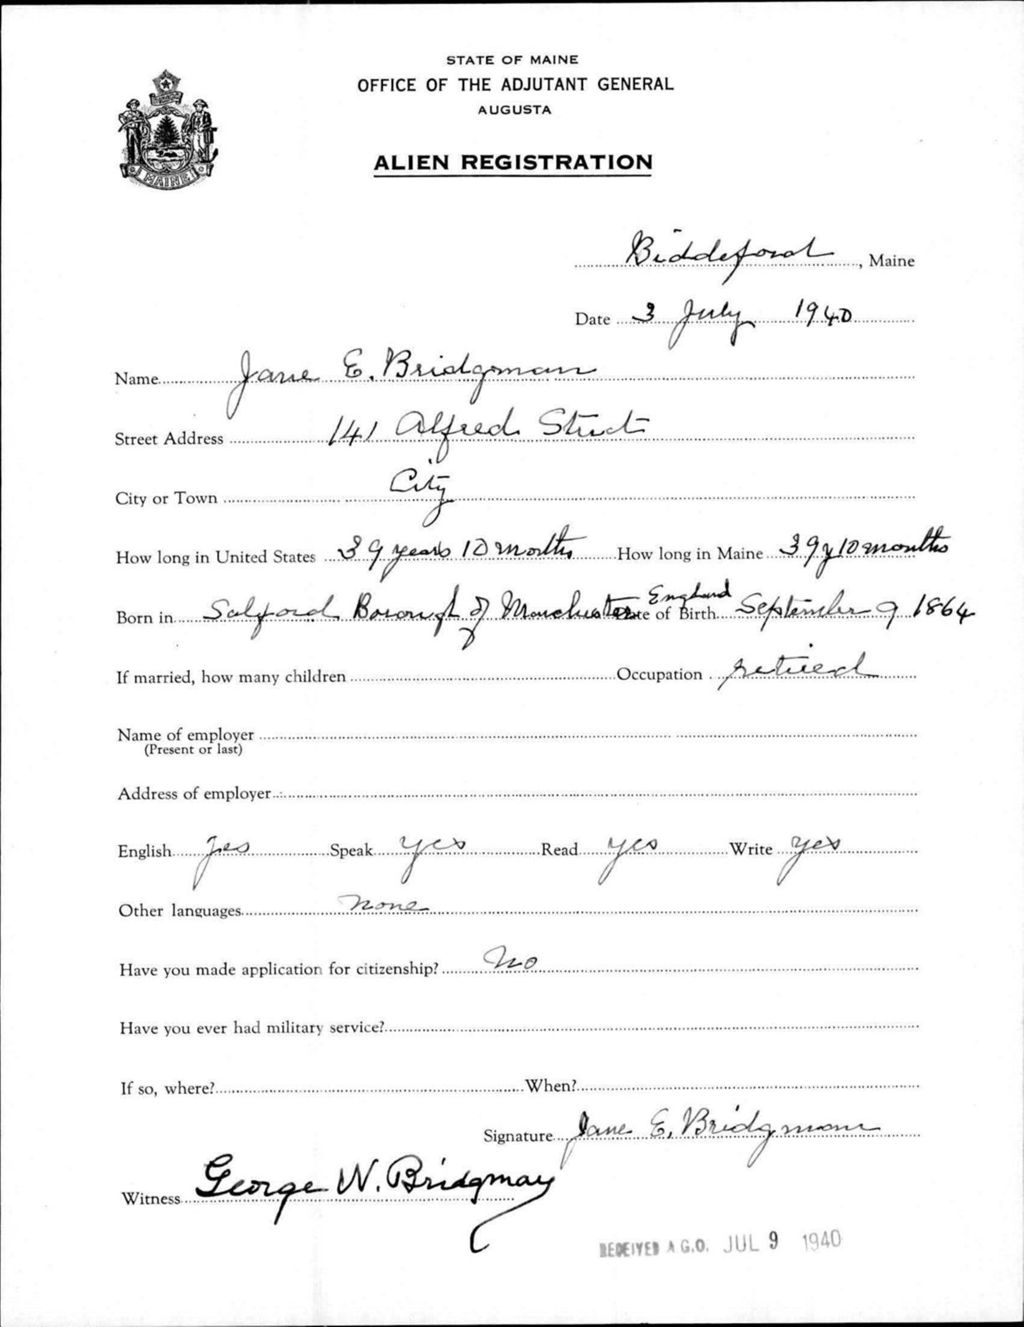 STATE OF MAINE
OFFICE OF THE ADJUTANT GENERAL
AUGUSTA
ALIEN REGISTRATION
MAINE
Biddeford, Maine
Date 3 July 1940
Name Jane E. Bridgman
Street Address 141 Alfred Street
City or Town City
How long in United States 39 years 10 months How long in Maine 39y 10 months
Born in Salford Borough of Manchester England Date of Birth September 9 1864
If married, how many children Occupation retired
Name of employer
(Present or last)
Address of employer
English yes Speak yes Read yes Write yes
Other languages none
Have you made application for citizenship? No
Have you ever had military service?
If so, where? When?
Signature Jane E. Bridgman
Witness George W. Bridgman
RECEIVED A.G.O. JUL 9 1940